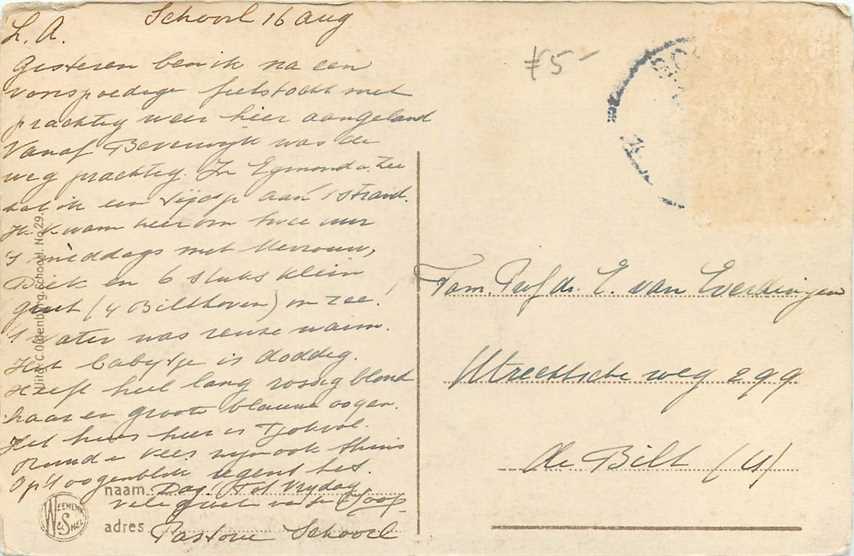 Schoorl 16 aug
L. A.
Gisteren ben ik na een
voorspoedige fietstocht met
prachtig weer hier aangeland
Vanaf Beverwijk was de
weg prachtig. In Egmond a. Zee
zat ik een tijdje aan 't strand.
Ik kwam hier om twee uur
's middags met Mevrouw,
en 6 stuks klein
goed (4 Bilthoven) in zee!
't water was reuze warm.
Het babytje is doddig.
Heeft heel lang rossig blond
haar en groote blauwe oogen.
Het huis hier is
en Kees zijn ook thuis
Op 't oogenblik regent het.
naam Dag, tot Vrijdag
vele groeten van Joop
adres Pastorie Schoorl
Uitg. C. Oldenburg, Schoorl. No 29.
WEENENK & SNEL
W & S
5-
Fam. Prof. dr. E. van Everdingen
Utrechtsche weg 299
de Bilt (U)